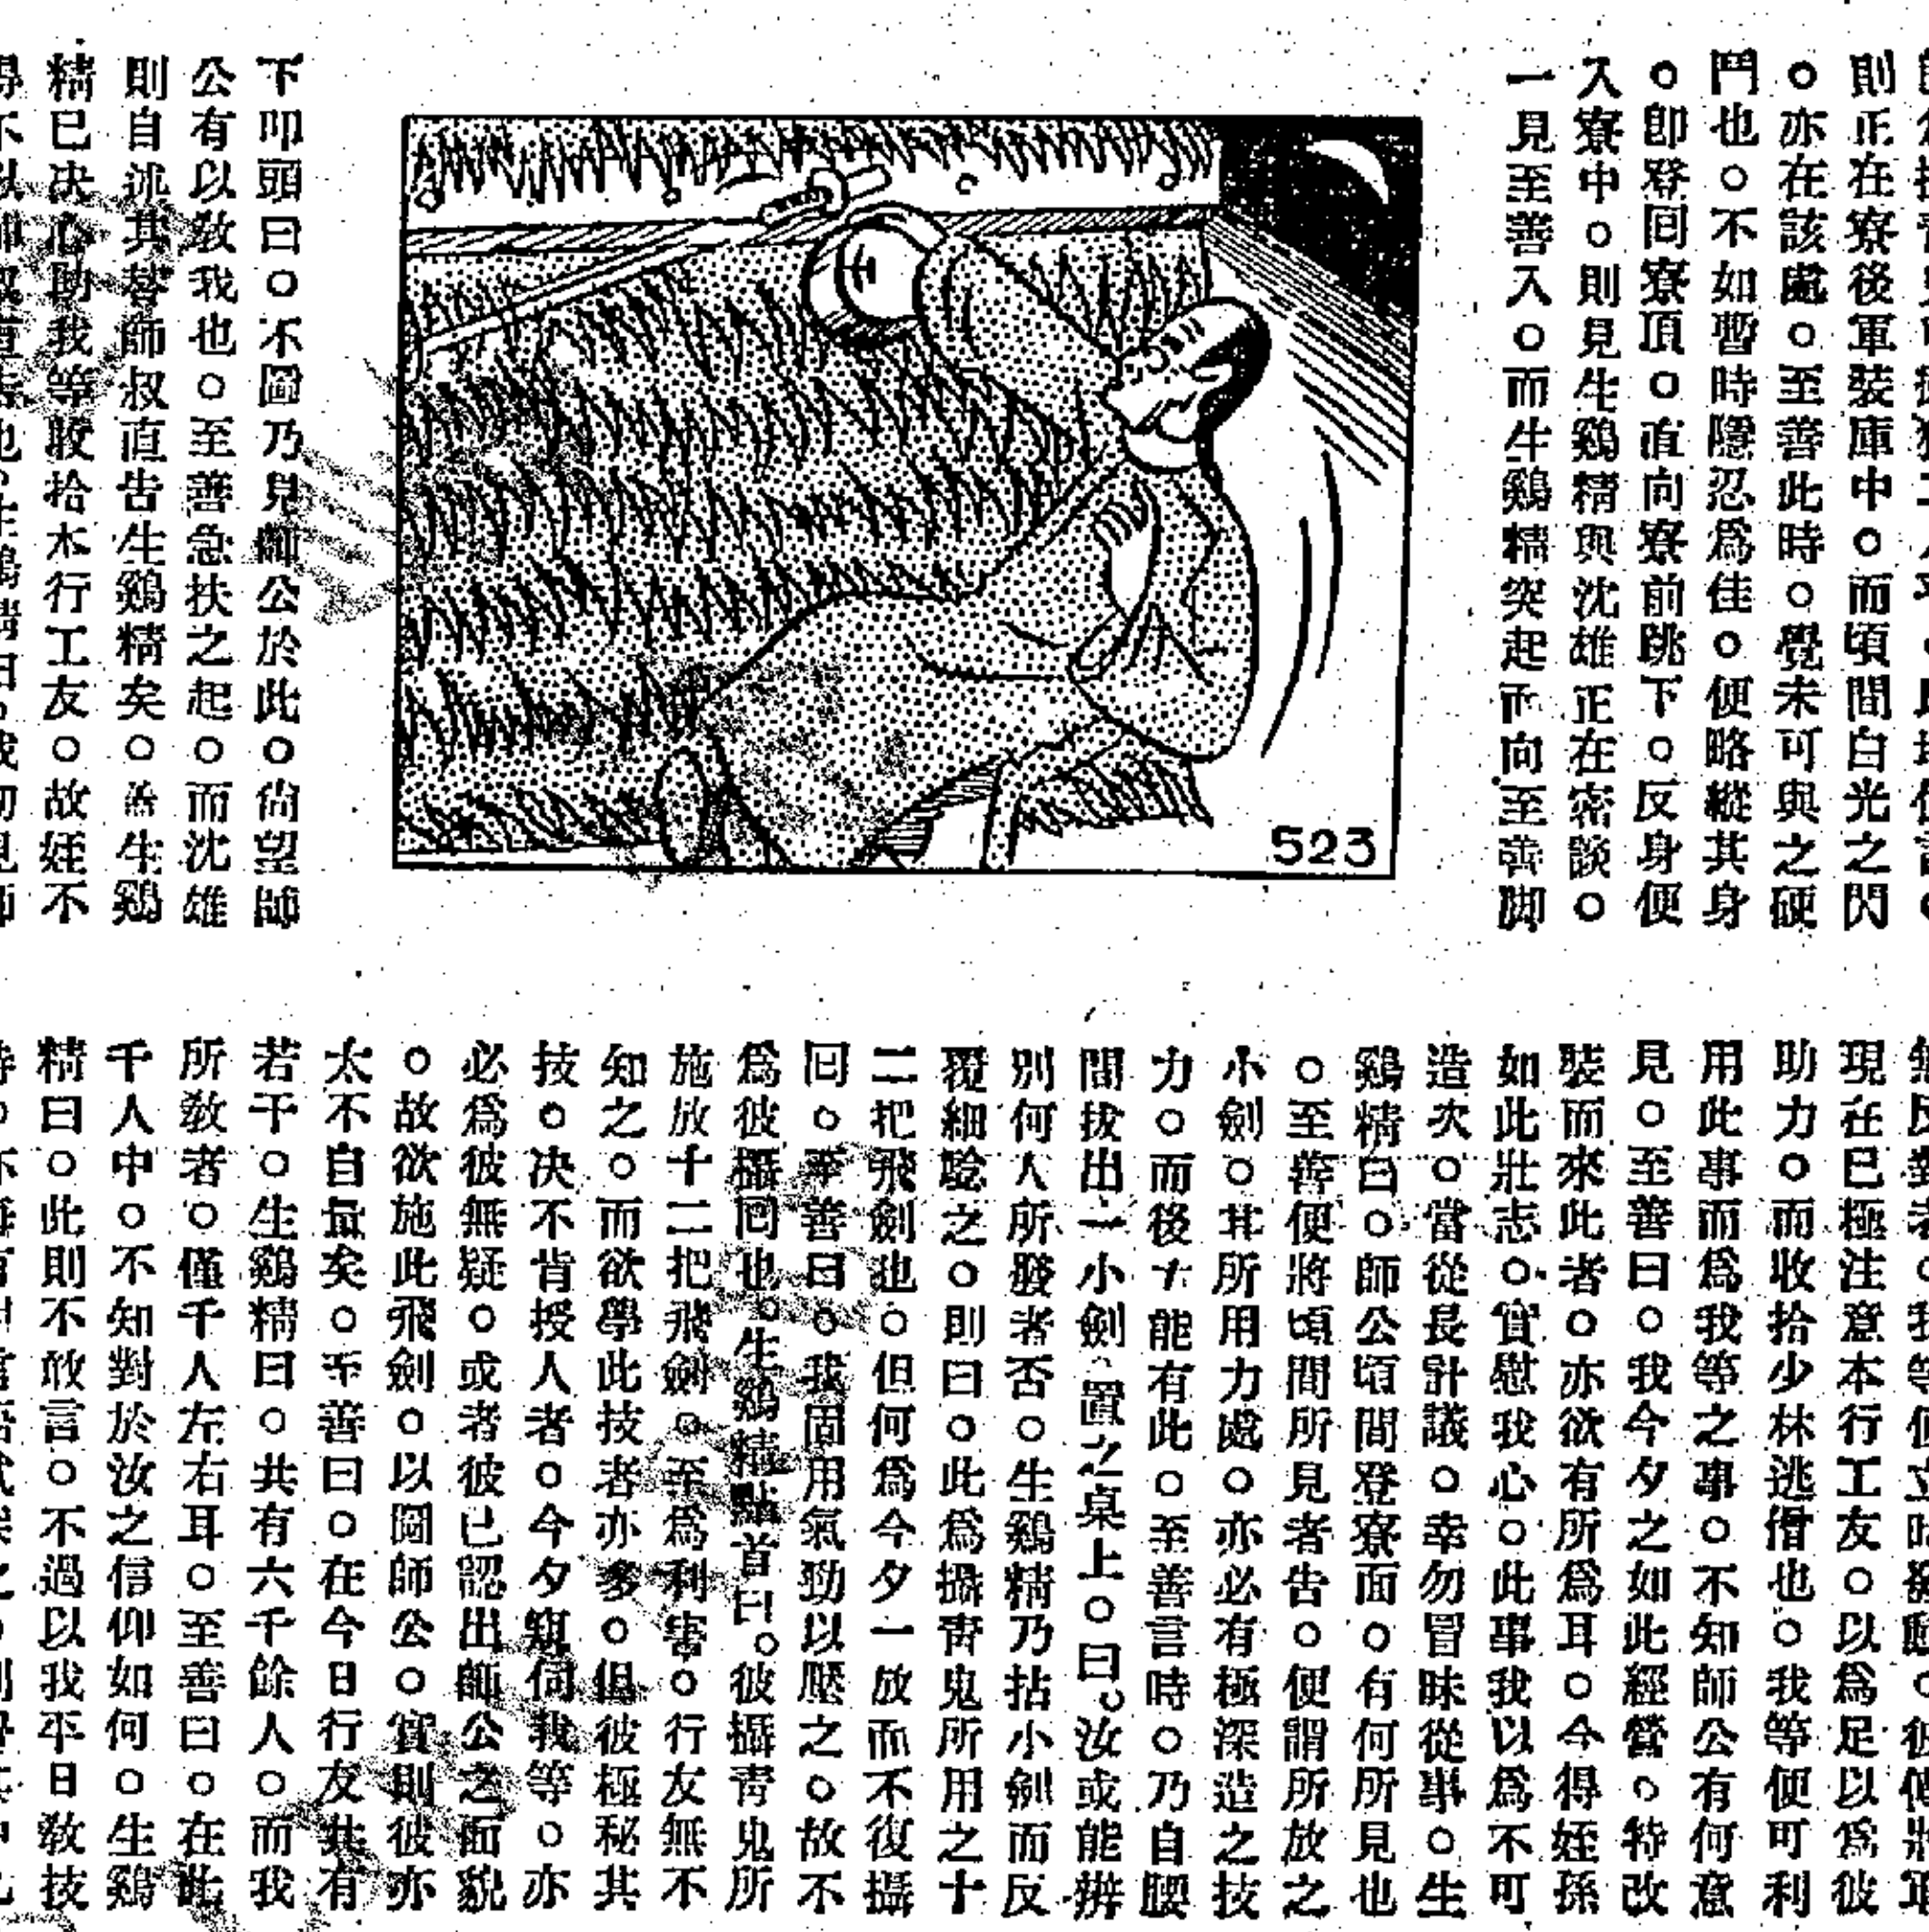 則正在寮後軍裝庫中。而頃間白光之閃
。亦在該處。至善此時。覺未可與之硬
鬥也。不如暫時隱忍爲佳。便略縱其身
。卽登回寮頂。直向寮前跳下。反身便
入寮中。則見生鷄精與沈雄正在密談。
一見至善入。而生鷄精突起而向至善脚
523
下叩頭曰。不圖乃見師公於此。尙望師
公有以敎我也。至善急扶之起。而沈雄
則自述其替師叔直告生鷄精矣。蓋生鷄
精已決心助我等收拾木行工友。故姪不
現在已極注意本行工友。以爲足以爲彼
助力。而收拾少林逃僧也。我等便可利
用此事而爲我等之事。不知師公有何意
見。至善曰。我今夕之如此經營。特改
裝而來此者。亦欲有所爲耳。今得姪孫
如此壯志。實慰我心。此事我以爲不可
造次。當從長計議。幸勿冒昧從事。生
鷄精曰。師公頃間登寮面。有何所見也
。至善便將頃間所見者告。便謂所放之
小劍。其所用力處。亦必有極深造之技
力。而後才能有此。至善言時。乃自腰
間拔出一小劍 置之桌上。曰。汝或能辨
別何人所發者否。生鷄精乃拈小劍而反
覆細睑之。則曰。此爲攝靑鬼所用之十
二把飛劍也。但何爲今夕一放而不復攝
回。至善曰。我固用氣勁以壓之。故不
爲彼攝回也。生鷄精點首曰。彼攝靑鬼所
施放十二把飛劍。至爲利害。行友無不
知之。而欲學此技者亦多。但彼極秘其
技。決不肯授人者。今夕窺伺我等。亦
必爲彼無疑。或者彼已認出師公之面貌
。故欲施此飛劍。以圖師公。實則彼亦
太不自量矣。至善曰。在今日行友共有
若干。生鷄精曰。共有六千餘人。而我
所敎者。僅千人左右耳。至善曰。在此
千人中。不知對於汝之信仰如何。生鷄
精曰。此則不敢言。不過以我平日敎技